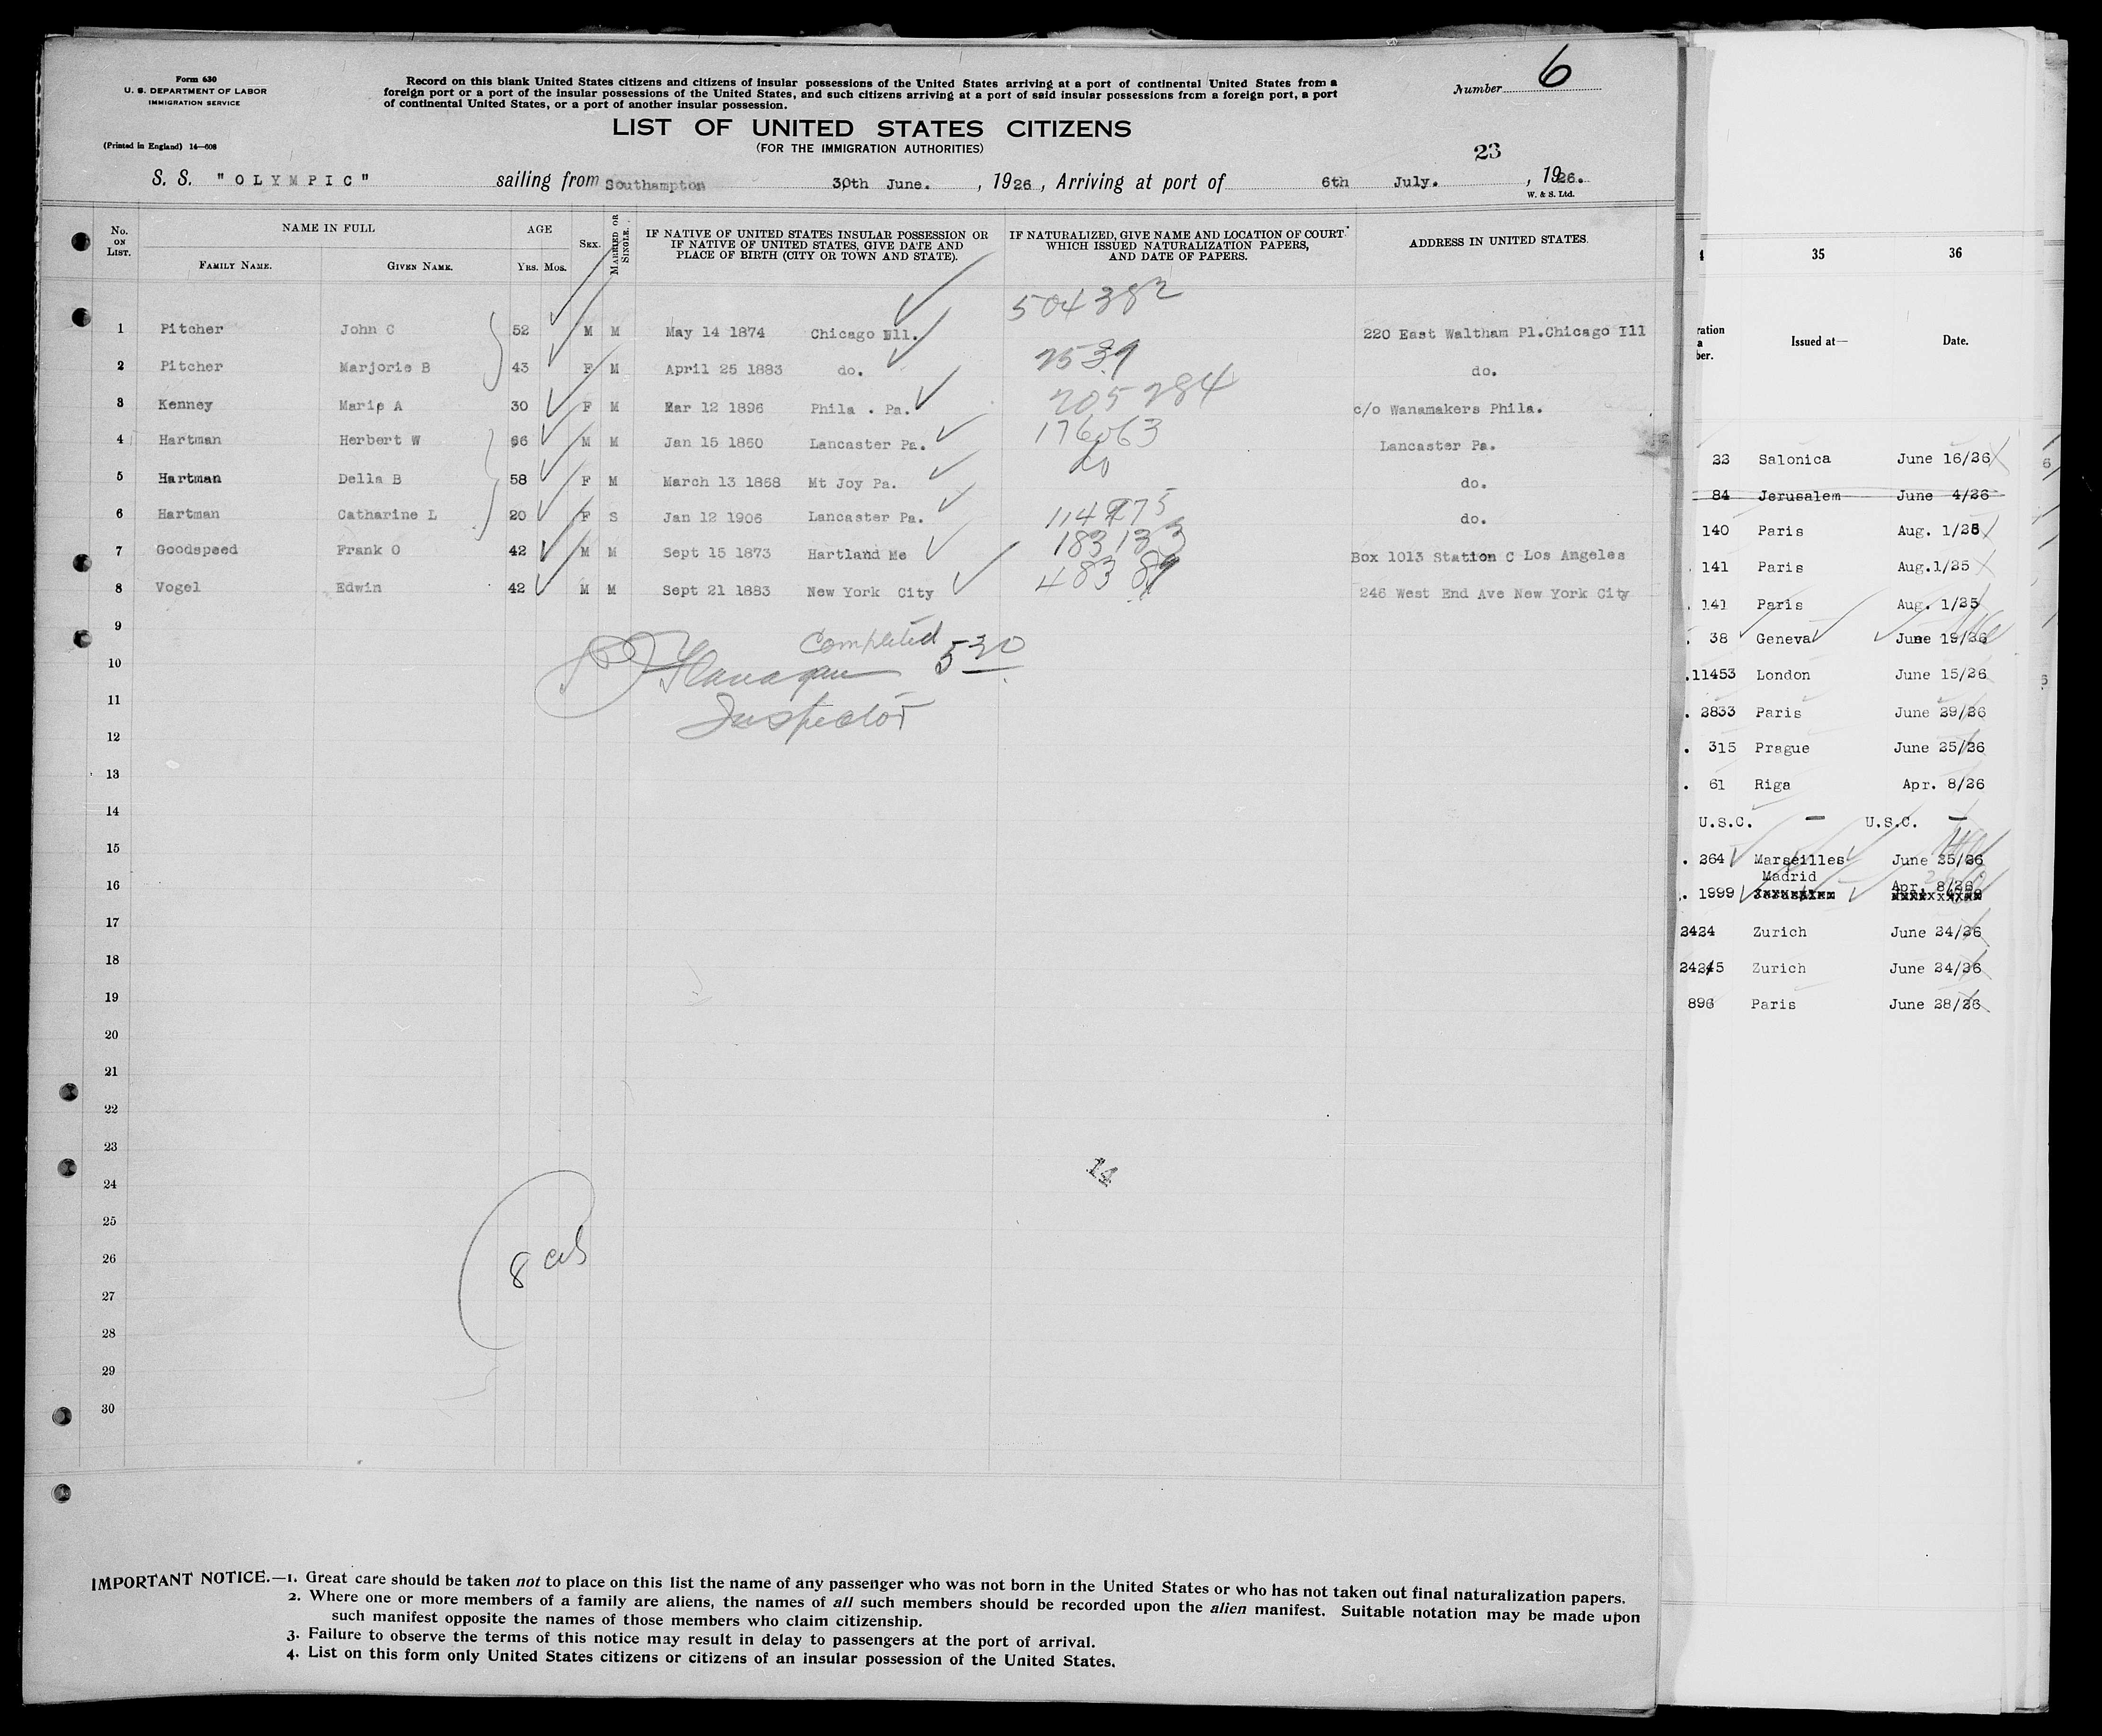 Form 630
U. S. DEPARTMENT OF LABOR
IMMIGRATION SERVICE
(Printed in England) 14—608
Record on this blank United States citizens and citizens of insular possessions of the United States arriving at a port of continental United States from a
foreign port or a port of the insular possessions of the United States, and such citizens arriving at a port of said insular possessions from a foreign port, a port
of continental United States, or a port of another insular possession.
Number 6
LIST OF UNITED STATES CITIZENS
(FOR THE IMMIGRATION AUTHORITIES)
23
S. S. "OLYMPIC" sailing from Southampton 30th June. , 1926 , Arriving at port of 6th July. , 1926.
W. & S. Ltd.
No. ON LIST. NAME IN FULL AGE SEX. MARRIED OR SINGLE. IF NATIVE OF UNITED STATES INSULAR POSSESSION OR IF NATIVE OF UNITED STATES, GIVE DATE AND PLACE OF BIRTH (CITY OR TOWN AND STATE). IF NATURALIZED, GIVE NAME AND LOCATION OF COURT WHICH ISSUED NATURALIZATION PAPERS, AND DATE OF PAPERS. ADDRESS IN UNITED STATES.
FAMILY NAME. GIVEN NAME. YRS. MOS.
504382
1 Pitcher John C 52 M M May 14 1874 Chicago Ill. 220 East Waltham Pl.Chicago Ill
2 Pitcher Marjorie B 43 F M April 25 1883 do. do.
3 Kenney Marie A 30 F M Mar 12 1896 Phila . Pa. 205284 c/o Wanamakers Phila.
4 Hartman Herbert W 66 M M Jan 15 1860 Lancaster Pa. 176063 Lancaster Pa.
5 Hartman Della B 58 F M March 13 1868 Mt Joy Pa. do do.
6 Hartman Catharine L 20 F S Jan 12 1906 Lancaster Pa. do.
7 Goodspeed Frank O 42 M M Sept 15 1873 Hartland Me 183133 Box 1013 Station C Los Angeles
8 Vogel Edwin 42 M M Sept 21 1883 New York City 246 West End Ave New York City
9
Completed 530
10
Flanagan
11
Inspector
12
13
14
15
16
17
18
19
20
21
22
23
14
24
25
26
8 cab
27
28
29
30
IMPORTANT NOTICE.—1. Great care should be taken not to place on this list the name of any passenger who was not born in the United States or who has not taken out final naturalization papers.
2. Where one or more members of a family are aliens, the names of all such members should be recorded upon the alien manifest. Suitable notation may be made upon
such manifest opposite the names of those members who claim citizenship.
3. Failure to observe the terms of this notice may result in delay to passengers at the port of arrival.
4. List on this form only United States citizens or citizens of an insular possession of the United States.
35 36
Issued at— Date.
ration
a
ber.
22 Salonica June 16/26
84 Jerusalem June 4/26
140 Paris Aug. 1/25
141 Paris Aug.1/25
141 Paris Aug. 1/25
38 Geneva June 19/26
.11453 London June 15/26
. 2833 Paris June 29/26
. 315 Prague June 25/26
. 61 Riga Apr. 8/26
U.S.C. — U.S.C. —
. 264 Marseilles June 25/26
Madrid Apr. 8/26
. 1999
2424 Zurich June 24/26
2425 Zurich June 24/26
896 Paris June 28/26